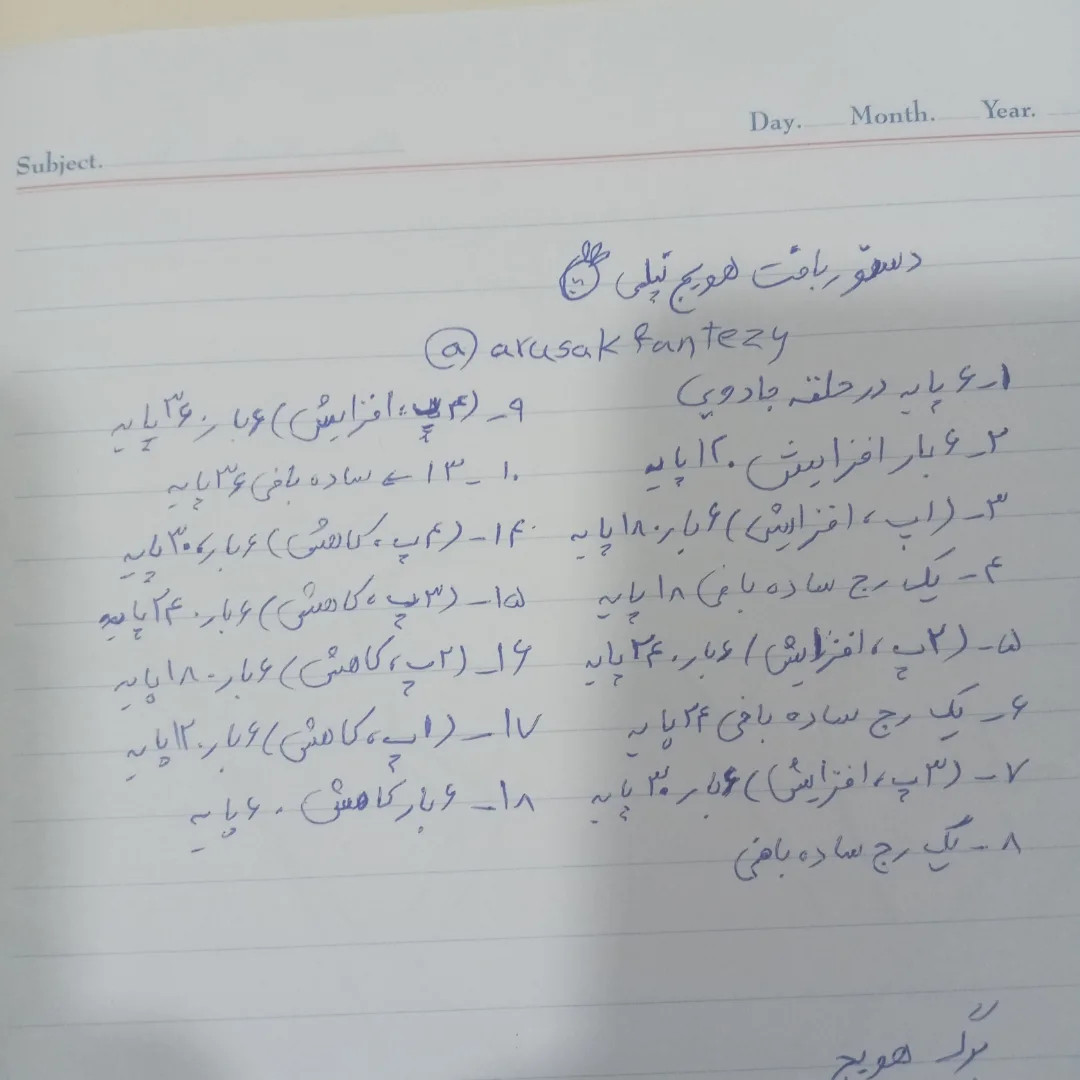 Subject.
Day. Month. Year.
دستور بافت هویج تپلی
@arusakfantezy
۱_ ۶ پایه در حلقه جادویی
۲_ ۶ بار افزایش . ۱۲ پایه
۳_ (۱پ ، افزایش) ۶ بار . ۱۸ پایه
۴_ یک رج ساده بافی ۱۸ پایه
۵_ (۲پ ، افزایش) ۶ بار . ۲۴ پایه
۶_ یک رج ساده بافی ۲۴ پایه
۷_ (۳پ ، افزایش) ۶ بار . ۳۰ پایه
۸_ یک رج ساده بافی
۹_ (۴پ ، افزایش) ۶ بار . ۳۶ پایه
۱۰_ ۱۳ ← ساده بافی ۳۶ پایه
۱۴_ (۴پ ، کاهش) ۶ بار . ۳۰ پایه
۱۵_ (۳پ ، کاهش) ۶ بار . ۲۴ پایه
۱۶_ (۲پ ، کاهش) ۶ بار . ۱۸ پایه
۱۷_ (۱پ ، کاهش) ۶ بار . ۱۲ پایه
۱۸_ ۶ بار کاهش . ۶ پایه
برگ هویج